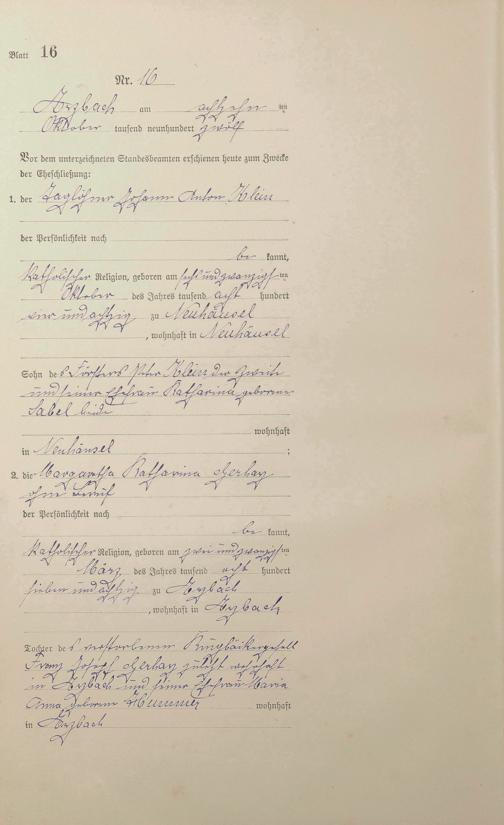 Blatt 16
Nr. 16
Arzbach am achtzehn ten
Oktober tausend neunhundert zwölf
Vor dem unterzeichneten Standesbeamten erschienen heute zum Zwecke
der Eheschließung:
1. der Taglöhner Johann Anton Klein
der Persönlichkeit nach
be kannt,
katholischer Religion, geboren am sechsundzwanzigs ten
Oktober des Jahres tausend acht hundert
vier und achtzig zu Neuhäusel
, wohnhaft in Neuhäusel
Sohn des Försters Peter Klein der Zweite
und seiner Ehefrau Katharina geborene
Sabel beide
wohnhaft
in Neuhäusel ;
2. die Margaretha Katharina Gerbay
ohne Beruf
der Persönlichkeit nach
be kannt,
katholischer Religion, geboren am zwei und zwanzigs ten
März des Jahres tausend acht hundert
sieben und achtzig zu Arzbach
, wohnhaft in Arzbach,
Tochter des verstorbenen
Franz Joseph Gerbay zuletzt wohnhaft
in Arzbach und seiner Ehefrau Maria
Anna geborene Hummer wohnhaft
in Arzbach